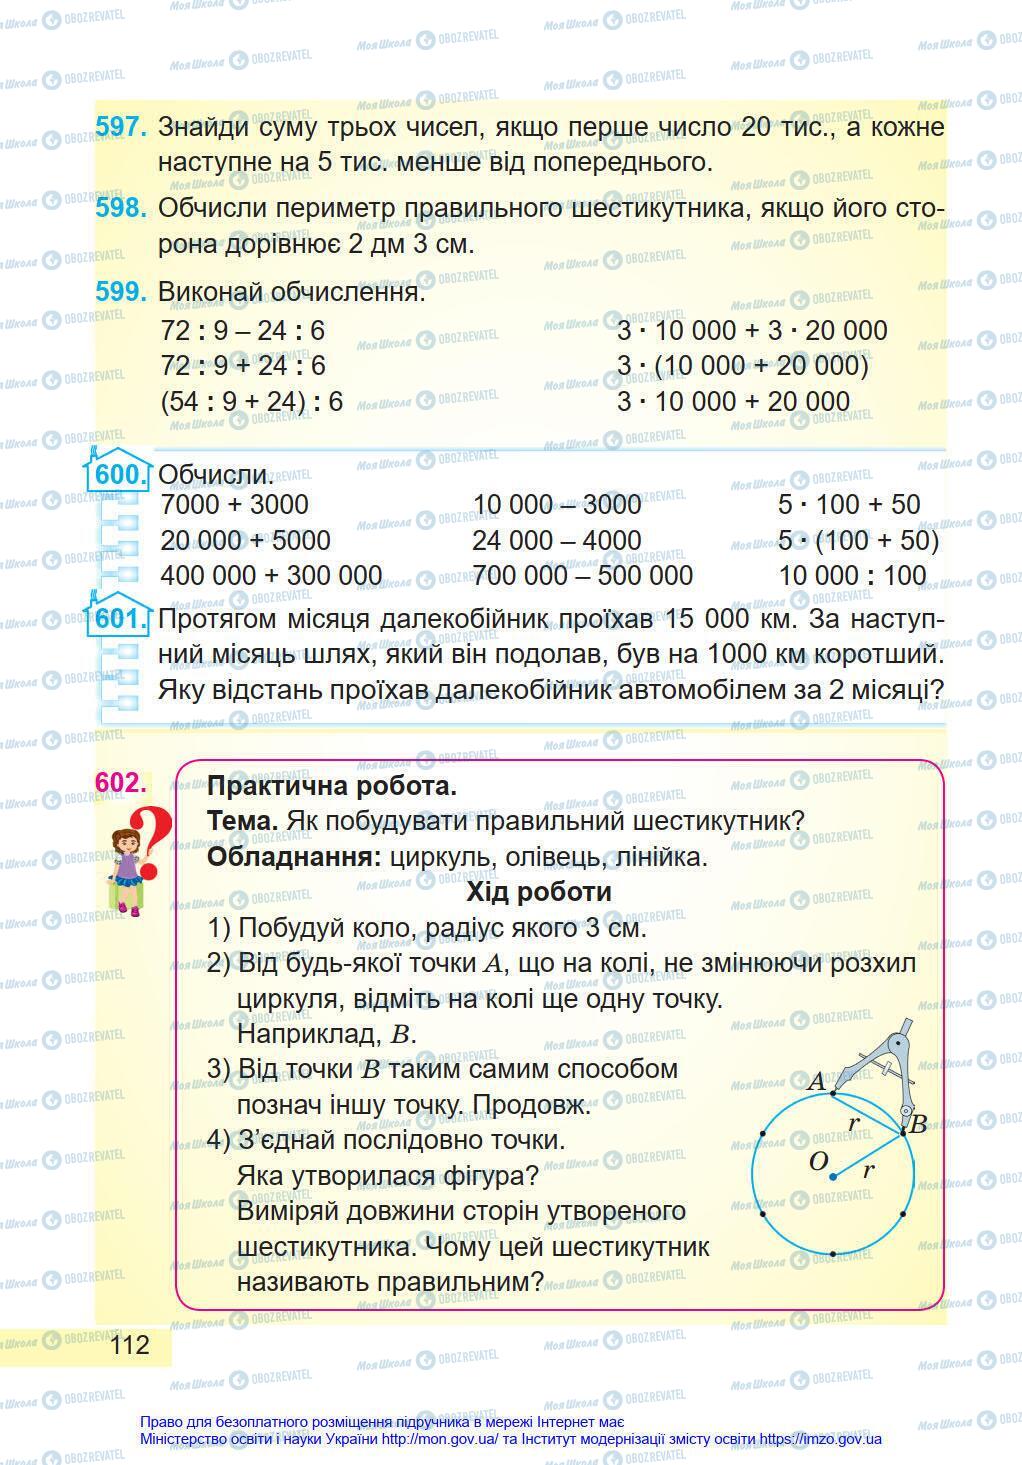 597. Знайди суму трьох чисел, якщо перше число 20 тис., а кожне
наступне на 5 тис. менше від попереднього.
598. Обчисли периметр правильного шестикутника, якщо його сто-
рона дорівнює 2 дм 3 см.
599. Виконай обчислення.
72 : 9 – 24 : 6
3 · 10 000 + 3 · 20 000
72 : 9 + 24 : 6
3 · (10 000 + 20 000)
(54 : 9 + 24) : 6
3 · 10 000 + 20 000
600. Обчисли.
7000 + 3000
10 000 – 3000
5 · 100 + 50
20 000 + 5000
24 000 – 4000
5 · (100 + 50)
400 000 + 300 000
700 000 – 500 000
10 000 : 100
601. Протягом місяця далекобійник проїхав 15 000 км. За наступ-
ний місяць шлях, який він подолав, був на 1000 км коротший.
Яку відстань проїхав далекобійник автомобілем за 2 місяці?
602.
Практична робота.
Тема. Як побудувати правильний шестикутник?
Обладнання: циркуль, олівець, лінійка.
Хід роботи
1) Побудуй коло, радіус якого 3 см.
2) Від будь-якої точки A, що на колі, не змінюючи розхил
циркуля, відміть на колі ще одну точку.
Наприклад, B.
3) Від точки B таким самим способом
познач іншу точку. Продовж.
4) З’єднай послідовно точки.
Яка утворилася фігура?
Виміряй довжини сторін утвореного
шестикутника. Чому цей шестикутник
називають правильним?
A
B
r
O
r
112
Право для безоплатного розміщення підручника в мережі Інтернет має
Міністерство освіти і науки України http://mon.gov.ua/ та Інститут модернізації змісту освіти https://imzo.gov.ua
МояШкола OBOZREVATEL